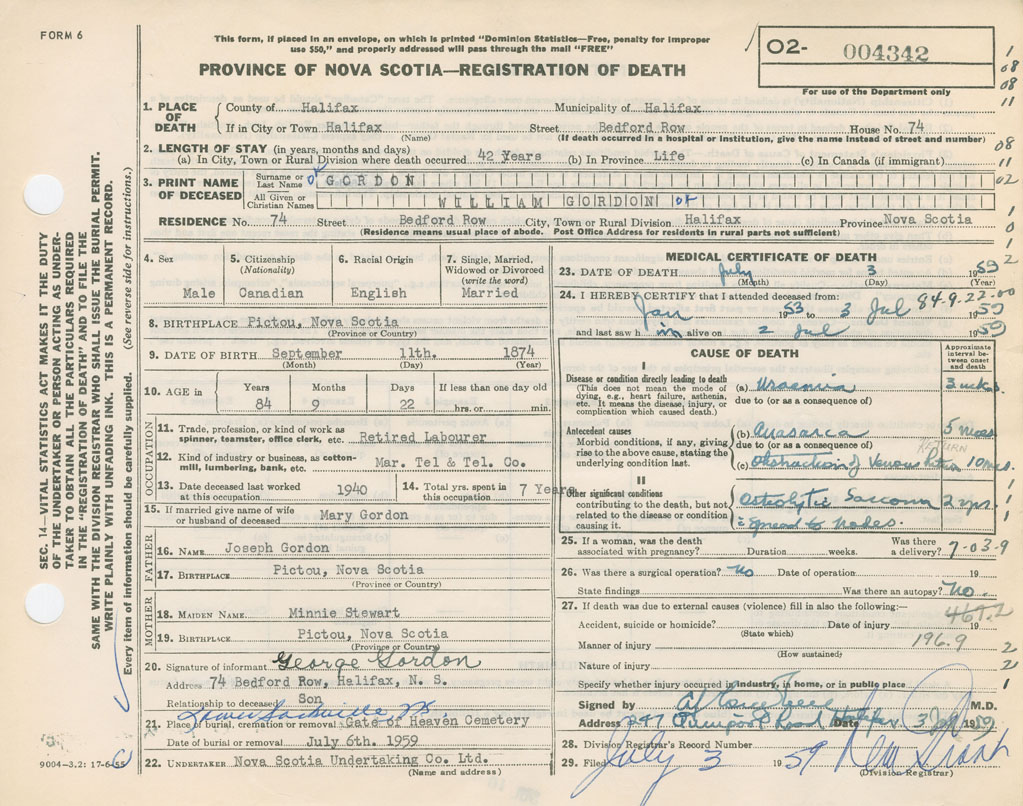 FORM 6
This form, if placed in an envelope, on which is printed "Dominion Statistics—Free, penalty for improper
use $50," and properly addressed will pass through the mail "FREE"
O2- 004342
For use of the Department only
PROVINCE OF NOVA SCOTIA—REGISTRATION OF DEATH
1. PLACE OF DEATH County of Halifax Municipality of Halifax
If in City or Town Halifax Street Bedford Row House No. 74
(Name) (If death occurred in a hospital or institution, give the name instead of street and number)
2. LENGTH OF STAY (in years, months and days)
(a) In City, Town or Rural Division where death occurred 42 Years (b) In Province Life (c) In Canada (if immigrant)
3. PRINT NAME OF DECEASED Surname or Last Name GORDON
All Given or Christian Names WILLIAM GORDON
RESIDENCE No. 74 Street Bedford Row City, Town or Rural Division Halifax Province Nova Scotia
(Residence means usual place of abode. Post Office Address for residents in rural parts not sufficient)
4. Sex 5. Citizenship (Nationality) 6. Racial Origin 7. Single, Married, Widowed or Divorced (write the word)
Male Canadian English Married
8. BIRTHPLACE Pictou, Nova Scotia
(Province or Country)
9. DATE OF BIRTH September 11th. 1874
(Month) (Day) (Year)
10. AGE in Years Months Days If less than one day old
84 9 22 hrs. or min.
OCCUPATION
11. Trade, profession, or kind of work as
spinner, teamster, office clerk, etc. Retired Labourer
12. Kind of industry or business, as cotton-
mill, lumbering, bank, etc. Mar. Tel & Tel. Co.
13. Date deceased last worked at this occupation 1940 14. Total yrs. spent in this occupation 7 Years
15. If married give name of wife
or husband of deceased Mary Gordon
FATHER
16. NAME Joseph Gordon
17. BIRTHPLACE Pictou, Nova Scotia
(Province or Country)
MOTHER
18. MAIDEN NAME Minnie Stewart
19. BIRTHPLACE Pictou, Nova Scotia
(Province or Country)
20. Signature of informant George Gordon
Address 74 Bedford Row, Halifax, N. S.
Relationship to deceased Son
Lower Sackville NS
21. Place of burial, cremation or removal Gate of Heaven Cemetery
Date of burial or removal July 6th. 1959
22. UNDERTAKER Nova Scotia Undertaking Co. Ltd.
(Name and address)
MEDICAL CERTIFICATE OF DEATH
23. DATE OF DEATH July 3 1959
(Month) (Day)
24. I HEREBY CERTIFY that I attended deceased from: 84.9.22.00
Jan 1953 to 3 Jul 1959
and last saw h im alive on 2 Jul 1959
CAUSE OF DEATH
Approximate interval between onset and death
I
Disease or condition directly leading to death (a) Uraemia 3 wks.
(This does not mean the mode of dying, e.g., heart failure, asthenia, etc. It means the disease, injury, or complication which caused death.) due to (or as a consequence of)
Antecedent causes (b) Anasarca 5 mos
Morbid conditions, if any, giving rise to the above cause, stating the underlying condition last. due to (or as a consequence of)
RETURN
(c) Obstruction of Venous Return 10 mos.
II
Other significant conditions Osteolytic Sarcoma 2 yrs.
contributing to the death, but not related to the disease or condition causing it. = spread to nodes.
25. If a woman, was the death associated with pregnancy? Duration weeks. Was there a delivery? 7-03.9
26. Was there a surgical operation? No Date of operation 19
State findings Was there an autopsy? No.
27. If death was due to external causes (violence) fill in also the following:—
467.2
Accident, suicide or homicide? Date of injury 19
(State which) 196.9
Manner of injury
(How sustained)
Nature of injury
Specify whether injury occurred in industry, in home, or in public place
Signed by M.D.
Address 247 Road Halifax Date 3 Jul 1959
28. Division Registrar's Record Number
29. Filed July 3 1959
(Division Registrar)
SEC. 14—VITAL STATISTICS ACT MAKES IT THE DUTY
OF THE UNDERTAKER OR PERSON ACTING AS UNDER-
TAKER TO OBTAIN ALL THE PARTICULARS REQUIRED
IN THE "REGISTRATION OF DEATH" AND TO FILE THE
SAME WITH THE DIVISION REGISTRAR WHO SHALL ISSUE THE BURIAL PERMIT.
WRITE PLAINLY WITH UNFADING INK. THIS IS A PERMANENT RECORD.
Every item of information should be carefully supplied. (See reverse side for instructions.)
9004-3.2: 17-6-55
1
08
08
11
08
11
02
1
0
1
2
1
1
2
2
1